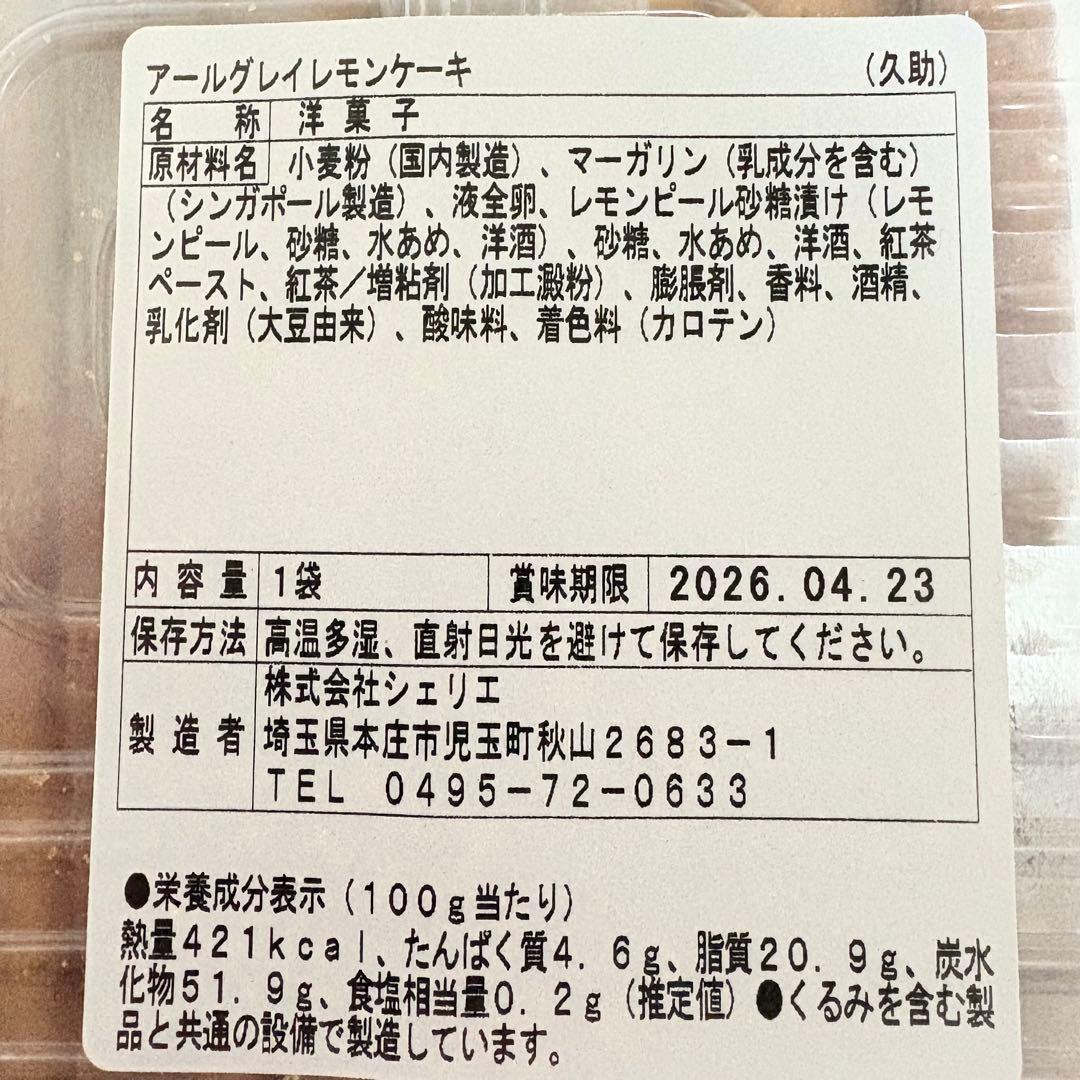 アールグレイレモンケーキ （久助）
名称 洋菓子
原材料名 小麦粉（国内製造）、マーガリン（乳成分を含む）
（シンガポール製造）、液全卵、レモンピール砂糖漬け（レモ
ンピール、砂糖、水あめ、洋酒）、砂糖、水あめ、洋酒、紅茶
ペースト、紅茶／増粘剤（加工澱粉）、膨脹剤、香料、酒精、
乳化剤（大豆由来）、酸味料、着色料（カロテン）
内容量 1袋 賞味期限 2026.04.23
保存方法 高温多湿、直射日光を避けて保存してください。
株式会社シェリエ
製造者 埼玉県本庄市児玉町秋山２６８３－１
ＴＥＬ ０４９５－７２－０６３３
●栄養成分表示（１００ｇ当たり）
熱量４２１ｋｃａｌ、たんぱく質４．６ｇ、脂質２０．９ｇ、炭水
化物５１．９ｇ、食塩相当量０．２ｇ（推定値）●くるみを含む製
品と共通の設備で製造しています。